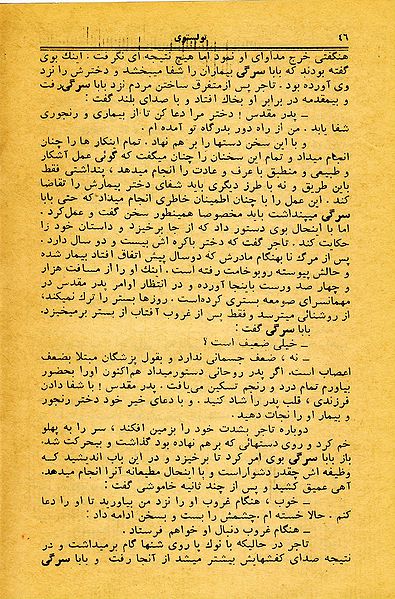 ۴۶ تولستوی
هنگفتی خرج مداوای او نمود اما هیچ نتیجه ای نگرفت. اینك بوی
گفته بودند که بابا سرگی بیماران را شفا میبخشد و دخترش را نزد
وی آورده بود. تاجر پس ازمتفرق ساختن مردم نزد بابا سرگی رفت
و بیمقدمه در برابر او بخاك افتاد و با صدای بلند گفت:
ـ پدر مقدس! دختر مرا دعا کن تا از بیماری و رنجوری
شفا یابد. من از راه دور بدرگاه تو آمده ام.
و با این سخن دستها را بر هم نهاد. تمام اینکار ها را چنان
انجام میداد و تمام این سخنان را چنان میگفت که گوئی عمل آشکار
و طبیعی و منطبق با عرف و عادت را انجام میدهد، پنداشتی فقط
باین طریق و نه با طرز دیگری باید شفای دختر بیمارش را تقاضا
کند. این عمل را با چنان اطمینان خاطری انجام میداد که حتی بابا
سرگی میپنداشت باید مخصوصا همینطور سخن گفت و عمل کرد.
اما با اینحال بوی دستور داد که از جا برخیزد و داستان خود را
حکایت کند. تاجر گفت که دختر باکره اش بیست و دو سال دارد.
پس از مرگ نا بهنگام مادرش که دوسال پیش اتفاق افتاد بیمار شده
و حالش پیوسته روبوخامت رفته است. اینك او را از مسافت هزار
و چهار صد ورست باینجا آورده و در انتظار اوامر پدر مقدس در
مهمانسرای صومعه بستری کرده است. روزها بستر را ترك نمیکند،
از روشنائی میترسد و فقط پس از غروب آفتاب از بستر برمیخیزد.
بابا سرگی گفت:
ـ خیلی ضعیف است؟
ـ نه، ضعف جسمانی ندارد و بقول پزشگان مبتلا بضعف
اعصاب است. اگر پدر روحانی دستورمیداد هم اکنون اورا بحضور
بیاورم تمام درد و رنجم تسکین می یافت. پدر مقدس! با شفا دادن
فرزندی، قلب پدر را شاد کنید. و با دعای خیر خود دختر رنجور
و بیمار او را نجات دهید.
دوباره تاجر بشدت خود را بزمین افکند، سر را به پهلو
خم کرد و روی دستهائی که بر هم نهاده بود گذاشت و بیحرکت شد.
باز بابا سرگی بوی امر کرد تا برخیزد و در این باب اندیشید که
وظیفه اش چقدر دشواراست و با اینحال مطیعانه آنرا انجام میدهد.
آهی عمیق کشید و پس از چند ثانیه خاموشی گفت:
ـ خوب، هنگام غروب او را نزد من بیاورید تا او را دعا
کنم. حالا خسته ام. چشمش را بست و بسخن ادامه داد:
ـ هنگام غروب دنبال او خواهم فرستاد.
تاجر در حالیکه با نوك پا روی شنها گام برمیداشت و در
نتیجه صدای کفشهایش بیشتر میشد از آنجا رفت و بابا سرگی